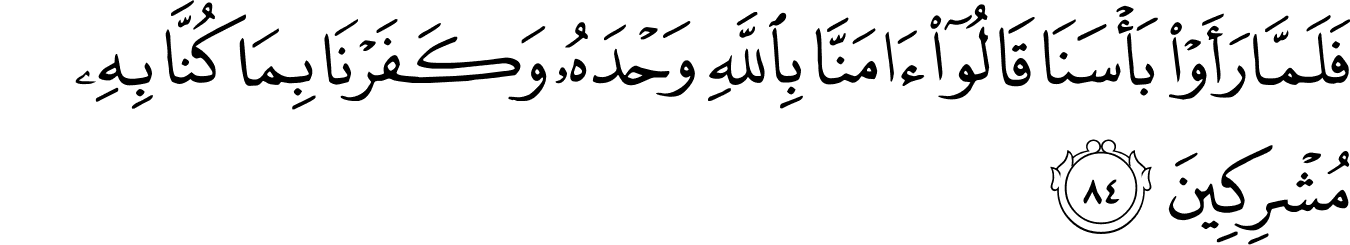 فَلَمَّا رَأَوْا۟ بَأْسَنَا قَالُوٓا۟ ءَامَنَّا بِٱللَّهِ وَحْدَهُۥ وَكَفَرْنَا بِمَا كُنَّا بِهِۦ
مُشْرِكِينَ ٨٤